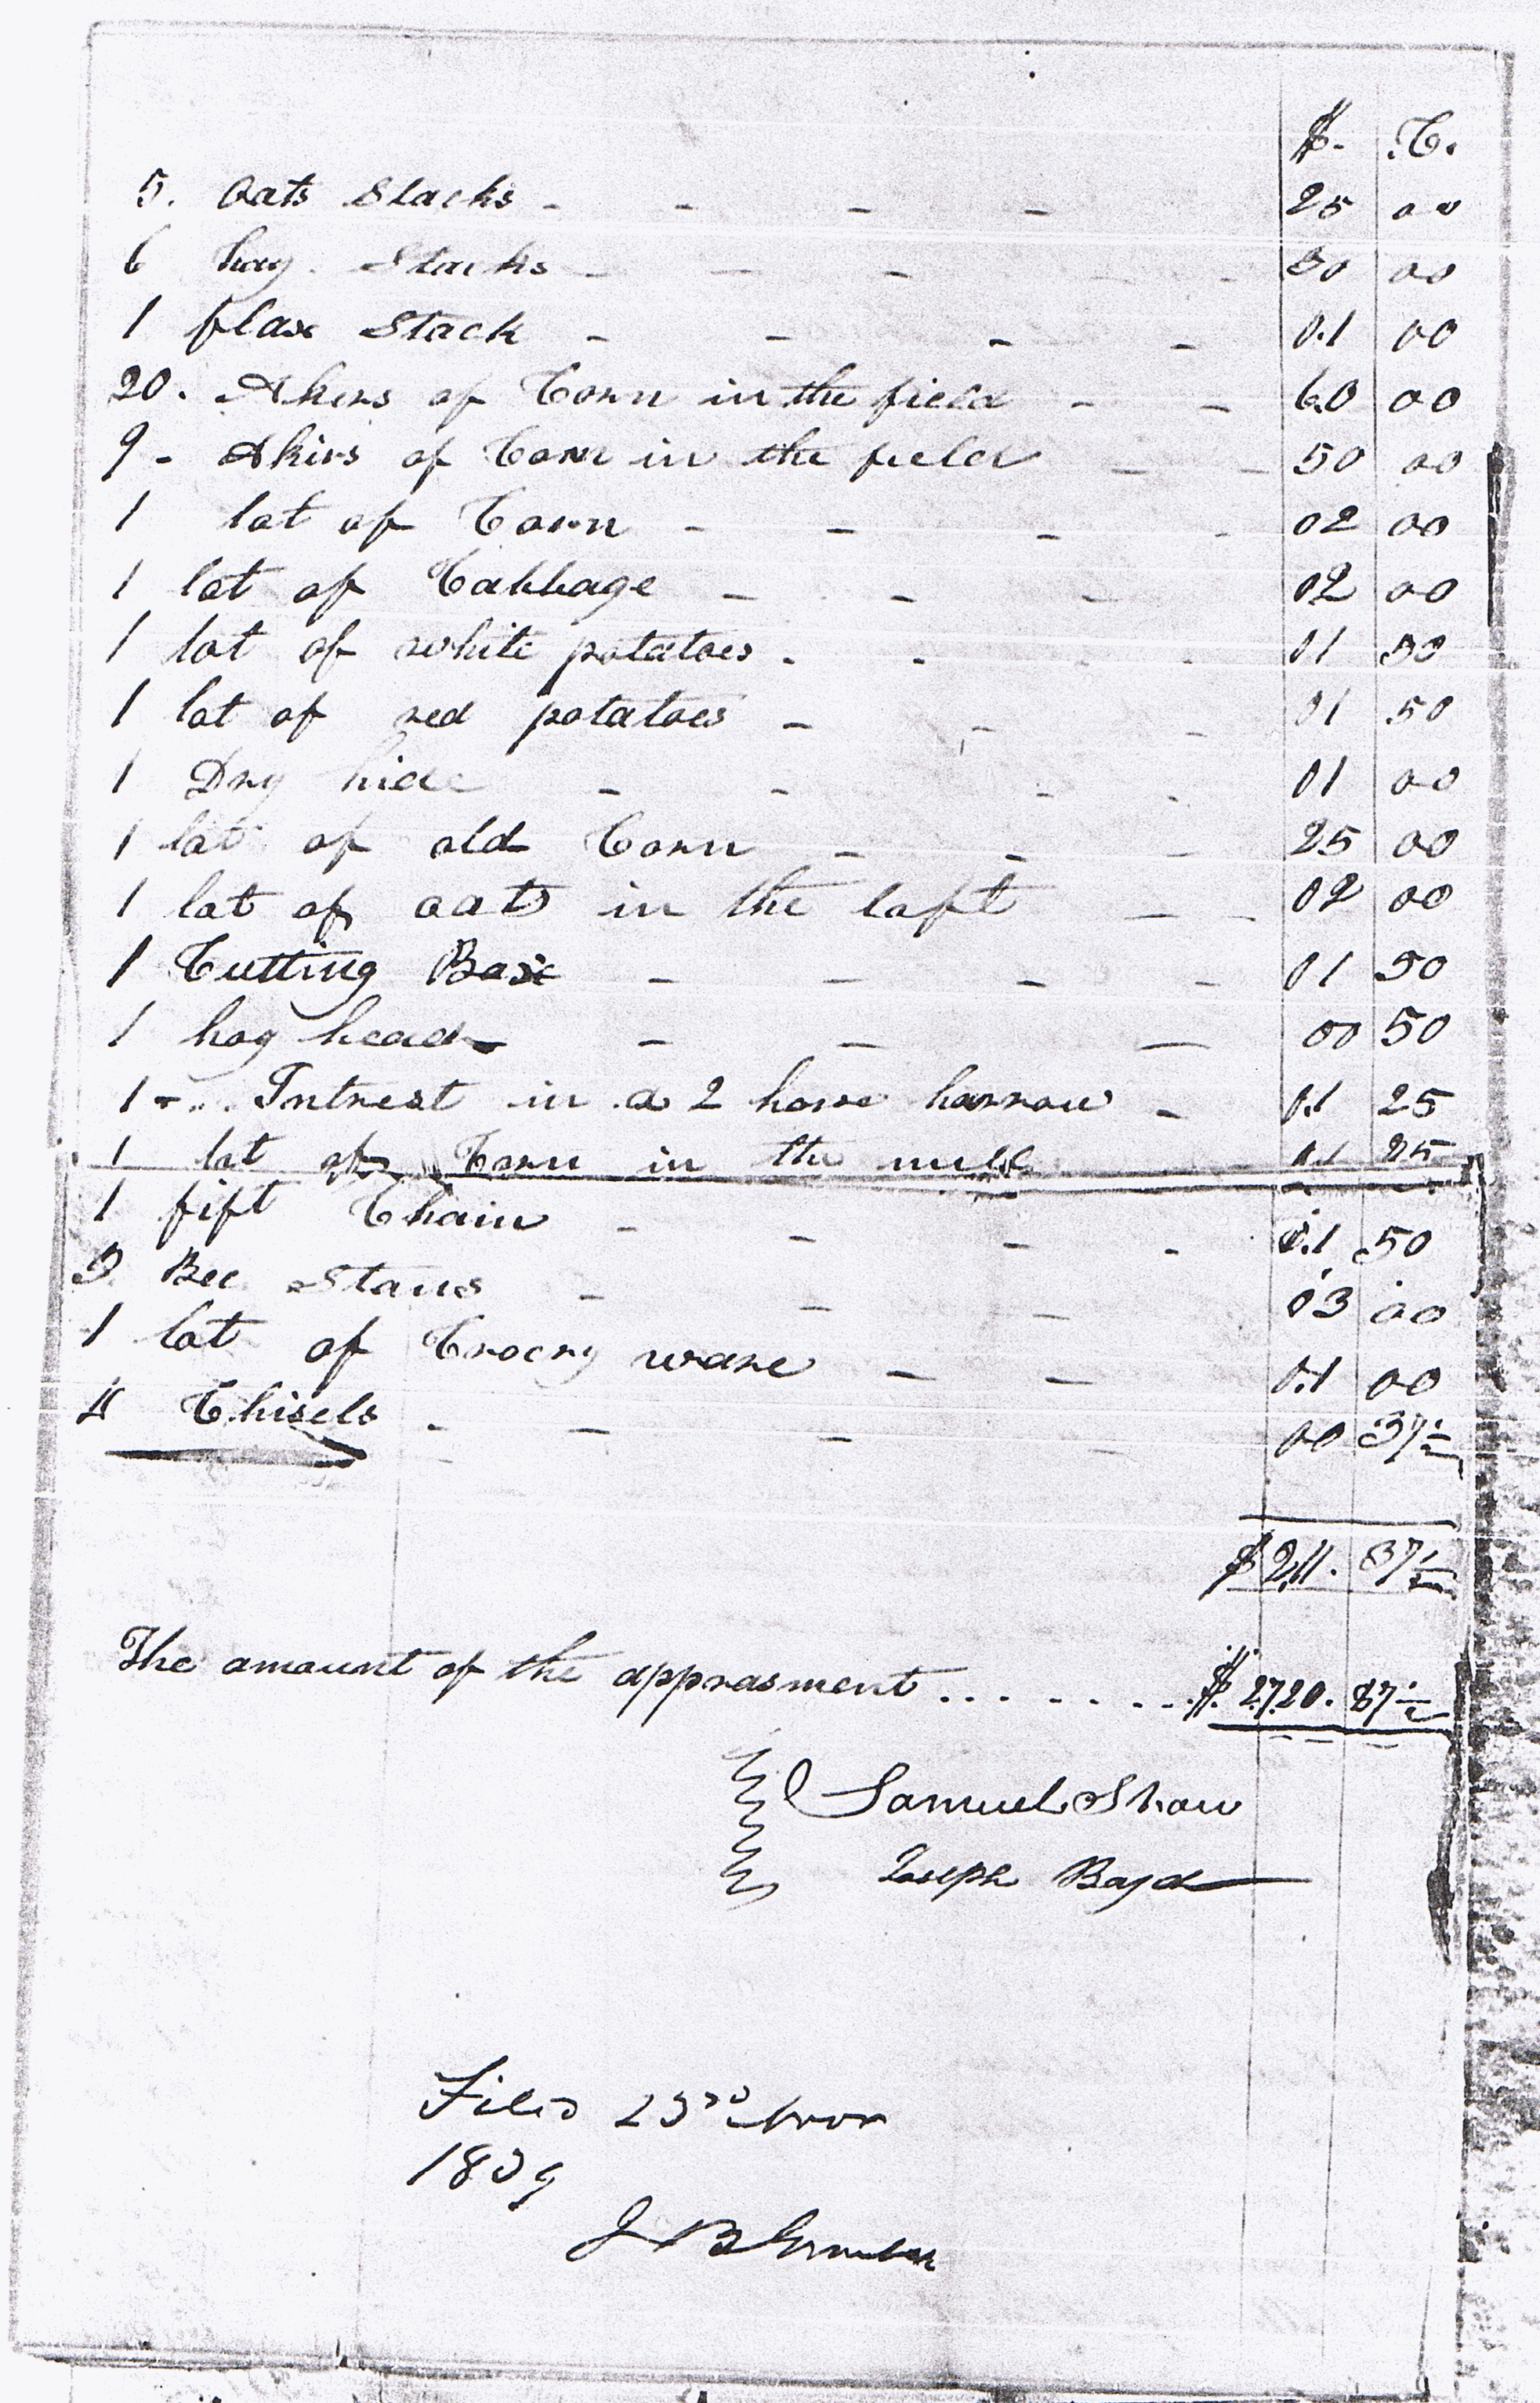 $. C.
5. Oats Stacks - - - - 25 00
6 hay Stacks - - - - 30 00
1 flax Stack - - - - 01 00
20. Akers of Corn in the field - - 60 00
9 - Akirs of Corn in the field - - 50 00
1 lot of Corn - - - - 02 00
1 lot of Cabbage - - - 02 00
1 lot of white potatoes - - - - 01 50
1 lot of red potatoes - - - 01 50
1 Dry hide - - - - 01 00
1 lot of old Corn - - - 25 00
1 lot of oats in the loft - - 02 00
1 Cutting Box - - - - 01 50
1 hog head - - - 00 50
1 - Intrest in a 2 horse harrow - 01 25
1 lot of Corn in the mill 01 25
1 fift Chain - - - - 01 50
3 Bee Stans - - - 03 00
1 lot of Crocry ware - - 01 00
4 Chisels - - - - 00 37½
$211. 37½
The amount of the apprasment ......... $2720. 87½
Samuel Shaw
Joseph Boyd
Filed 23rd Nov
1839
J B